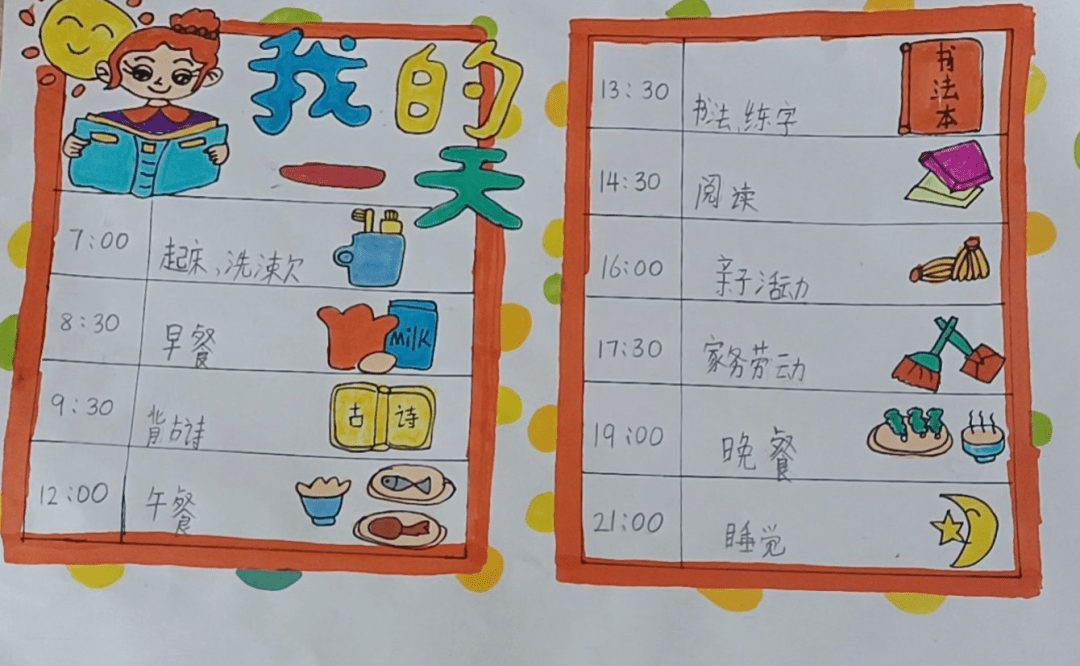 我的
一天
7:00 起床、洗漱
8:30 早餐
milk
9:30 背古诗
古诗
12:00 午餐
13:30 书法、练字
书法本
14:30 阅读
16:00 亲子活动
17:30 家务劳动
19:00 晚餐
21:00 睡觉